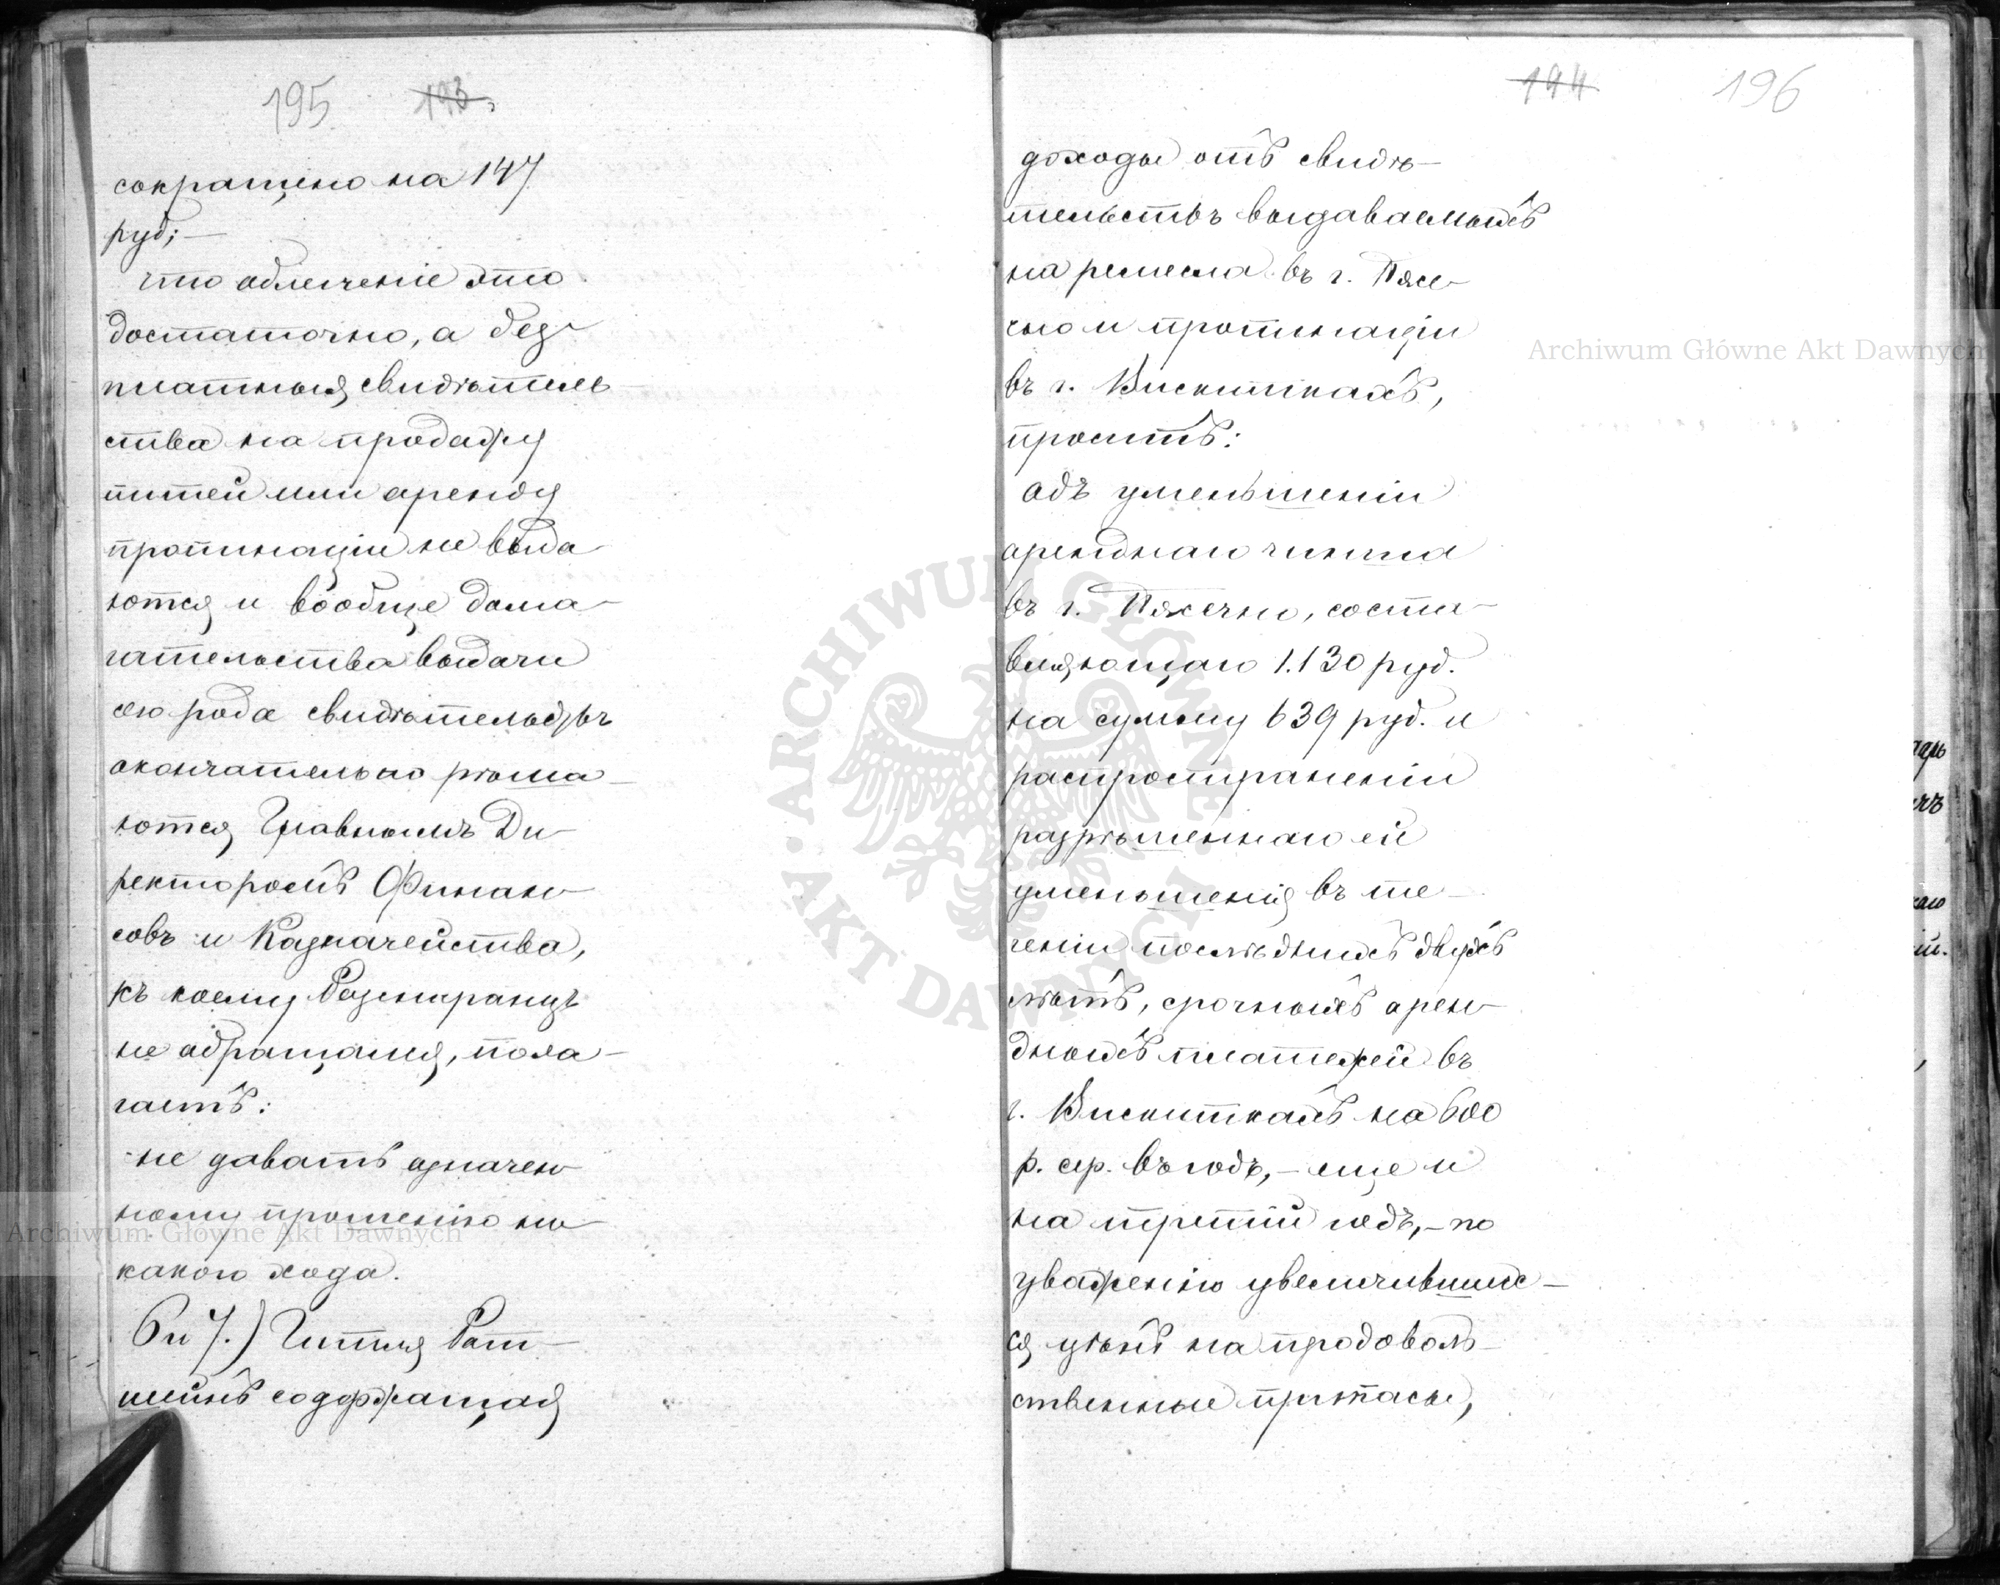 195 193
сокращено на 147
руб; —
что облегченіе это
достаточно, а без-
платныя свидѣтель-
ства на продажу
питей или аренду
пропинаціи не выда-
ются и вообще дома-
гательства выдачи
сего рода свидѣтельствъ
окончательно рѣша-
ются Главнымъ Ди-
ректоромъ Финан-
совъ и Казначейства,
къ коему Розенкранцъ
не обращался, пола-
гаетъ:
не давать означен-
ному прошенію ни-
какого хода.
6 и 7.) Гитля Рот-
штейнъ содержащая
194 196
доходы отъ свидѣ-
тельствъ выдаваемыхъ
на ремесла въ г. Пясе-
чно и пропинаціи
въ г. Вискиткахъ,
проситъ:
объ уменьшеніи
арендная чинша
въ г. Пясечно, соста-
вляющаго 1.130 руб.
на сумму 639 руб. и
распространеніи
разрѣшеннаго ей
уменьшенія въ те-
ченіи послѣднихъ двухъ
лѣтъ, срочныхъ арен-
дныхъ платежей въ
г. Вискиткахъ на 600
р. сер. въ годъ, — еще и
на третій годъ, — по
уваженію увеличивших-
ся цѣнъ на продоволь-
ственные припасы,
Archiwum Główne Akt Dawnych
Archiwum Główne Akt Dawnych
ARCHIWUM GŁÓWNE AKT DAWNYCH